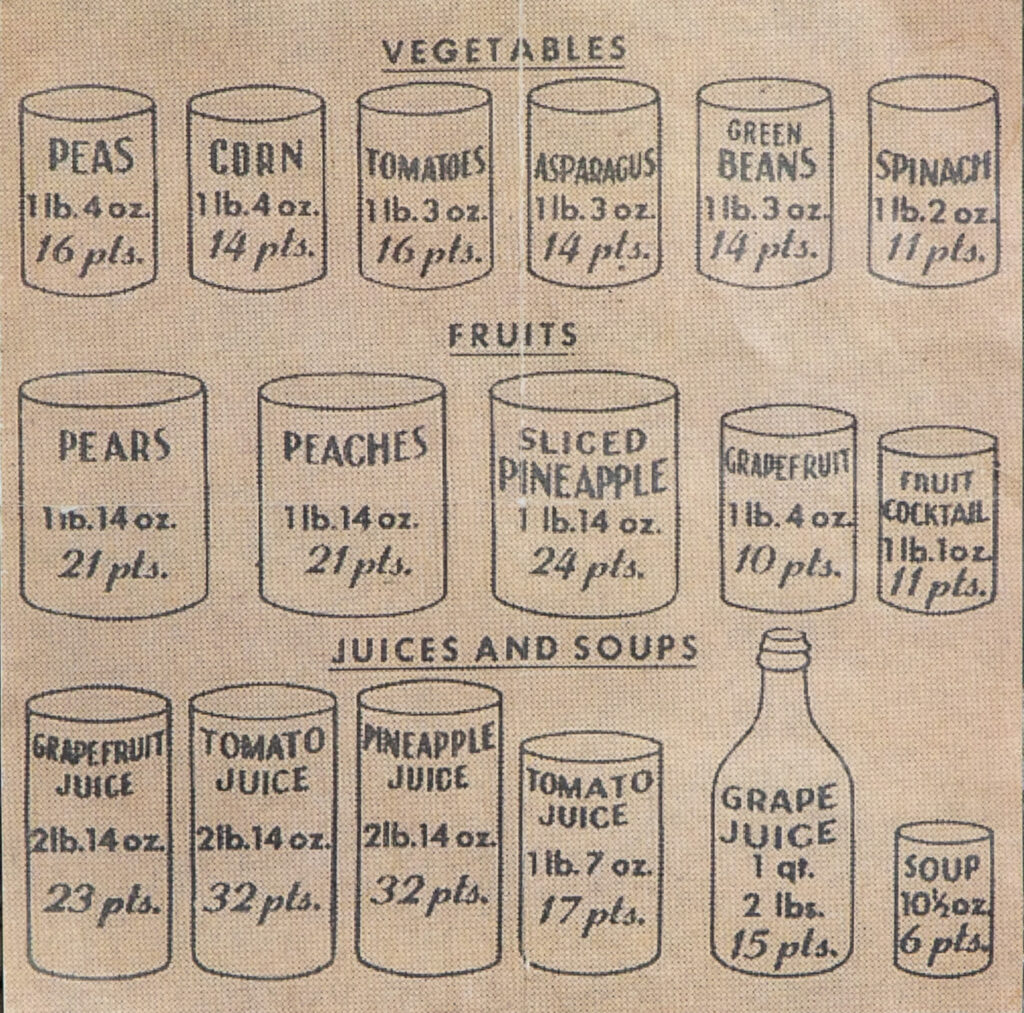 VEGETABLES
PEAS
1 lb. 4 oz.
16 pts.
CORN
1 lb. 4 oz.
14 pts.
TOMATOES
1 lb. 3 oz.
16 pts.
ASPARAGUS
1 lb. 3 oz.
14 pts.
GREEN
BEANS
1 lb. 3 oz.
14 pts.
SPINACH
1 lb. 2 oz.
11 pts.
FRUITS
PEARS
1 lb. 14 oz.
21 pts.
PEACHES
1 lb. 14 oz.
21 pts.
SLICED
PINEAPPLE
1 lb. 14 oz.
24 pts.
GRAPEFRUIT
1 lb. 4 oz.
10 pts.
FRUIT
COCKTAIL
1 lb. 1 oz.
11 pts.
JUICES AND SOUPS
GRAPEFRUIT
JUICE
2 lb. 14 oz.
23 pts.
TOMATO
JUICE
2 lb. 14 oz.
32 pts.
PINEAPPLE
JUICE
2 lb. 14 oz.
32 pts.
TOMATO
JUICE
1 lb. 7 oz.
17 pts.
GRAPE
JUICE
1 qt.
2 lbs.
15 pts.
SOUP
10½ oz.
6 pts.